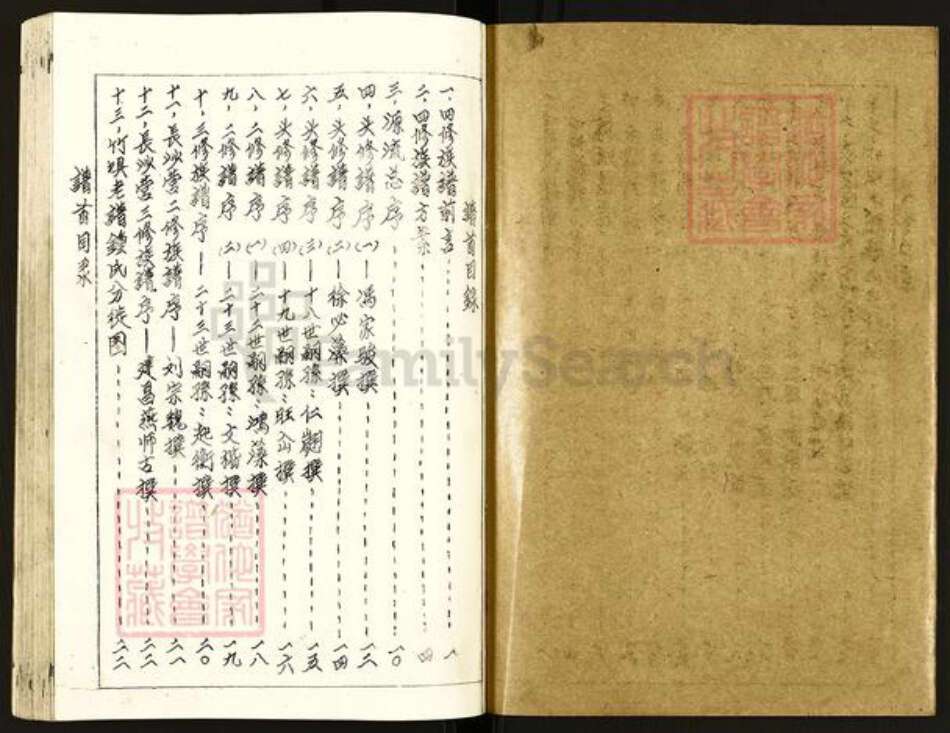 譜首目錄
一、四修族譜前言 一
二、四修族譜方案 四
三、源流总序 一〇
四、头修譜序(一)—馮家駿撰 一二
五、头修譜序(二)—徐必藻撰 一四
六、头修譜序(三)—十八世嗣孫：仁翽撰 一五
七、头修譜序(四)—十九世嗣孫：旺撰 一六
八、二修譜序(一)—二十二世嗣孫：鴻藻撰 一八
九、二修譜序(二)—二十三世嗣孫：文撰 一九
十、三修族譜序—二十三世嗣孫：起衡撰 二〇
十一、長沙雲二修族譜序—刘宗魏撰 二一
十二、長沙雲三修族譜序—建昌燕师古撰 二二
十三、竹埧老譜鍾氏分徙图 二二
譜首目录
FamilySearch